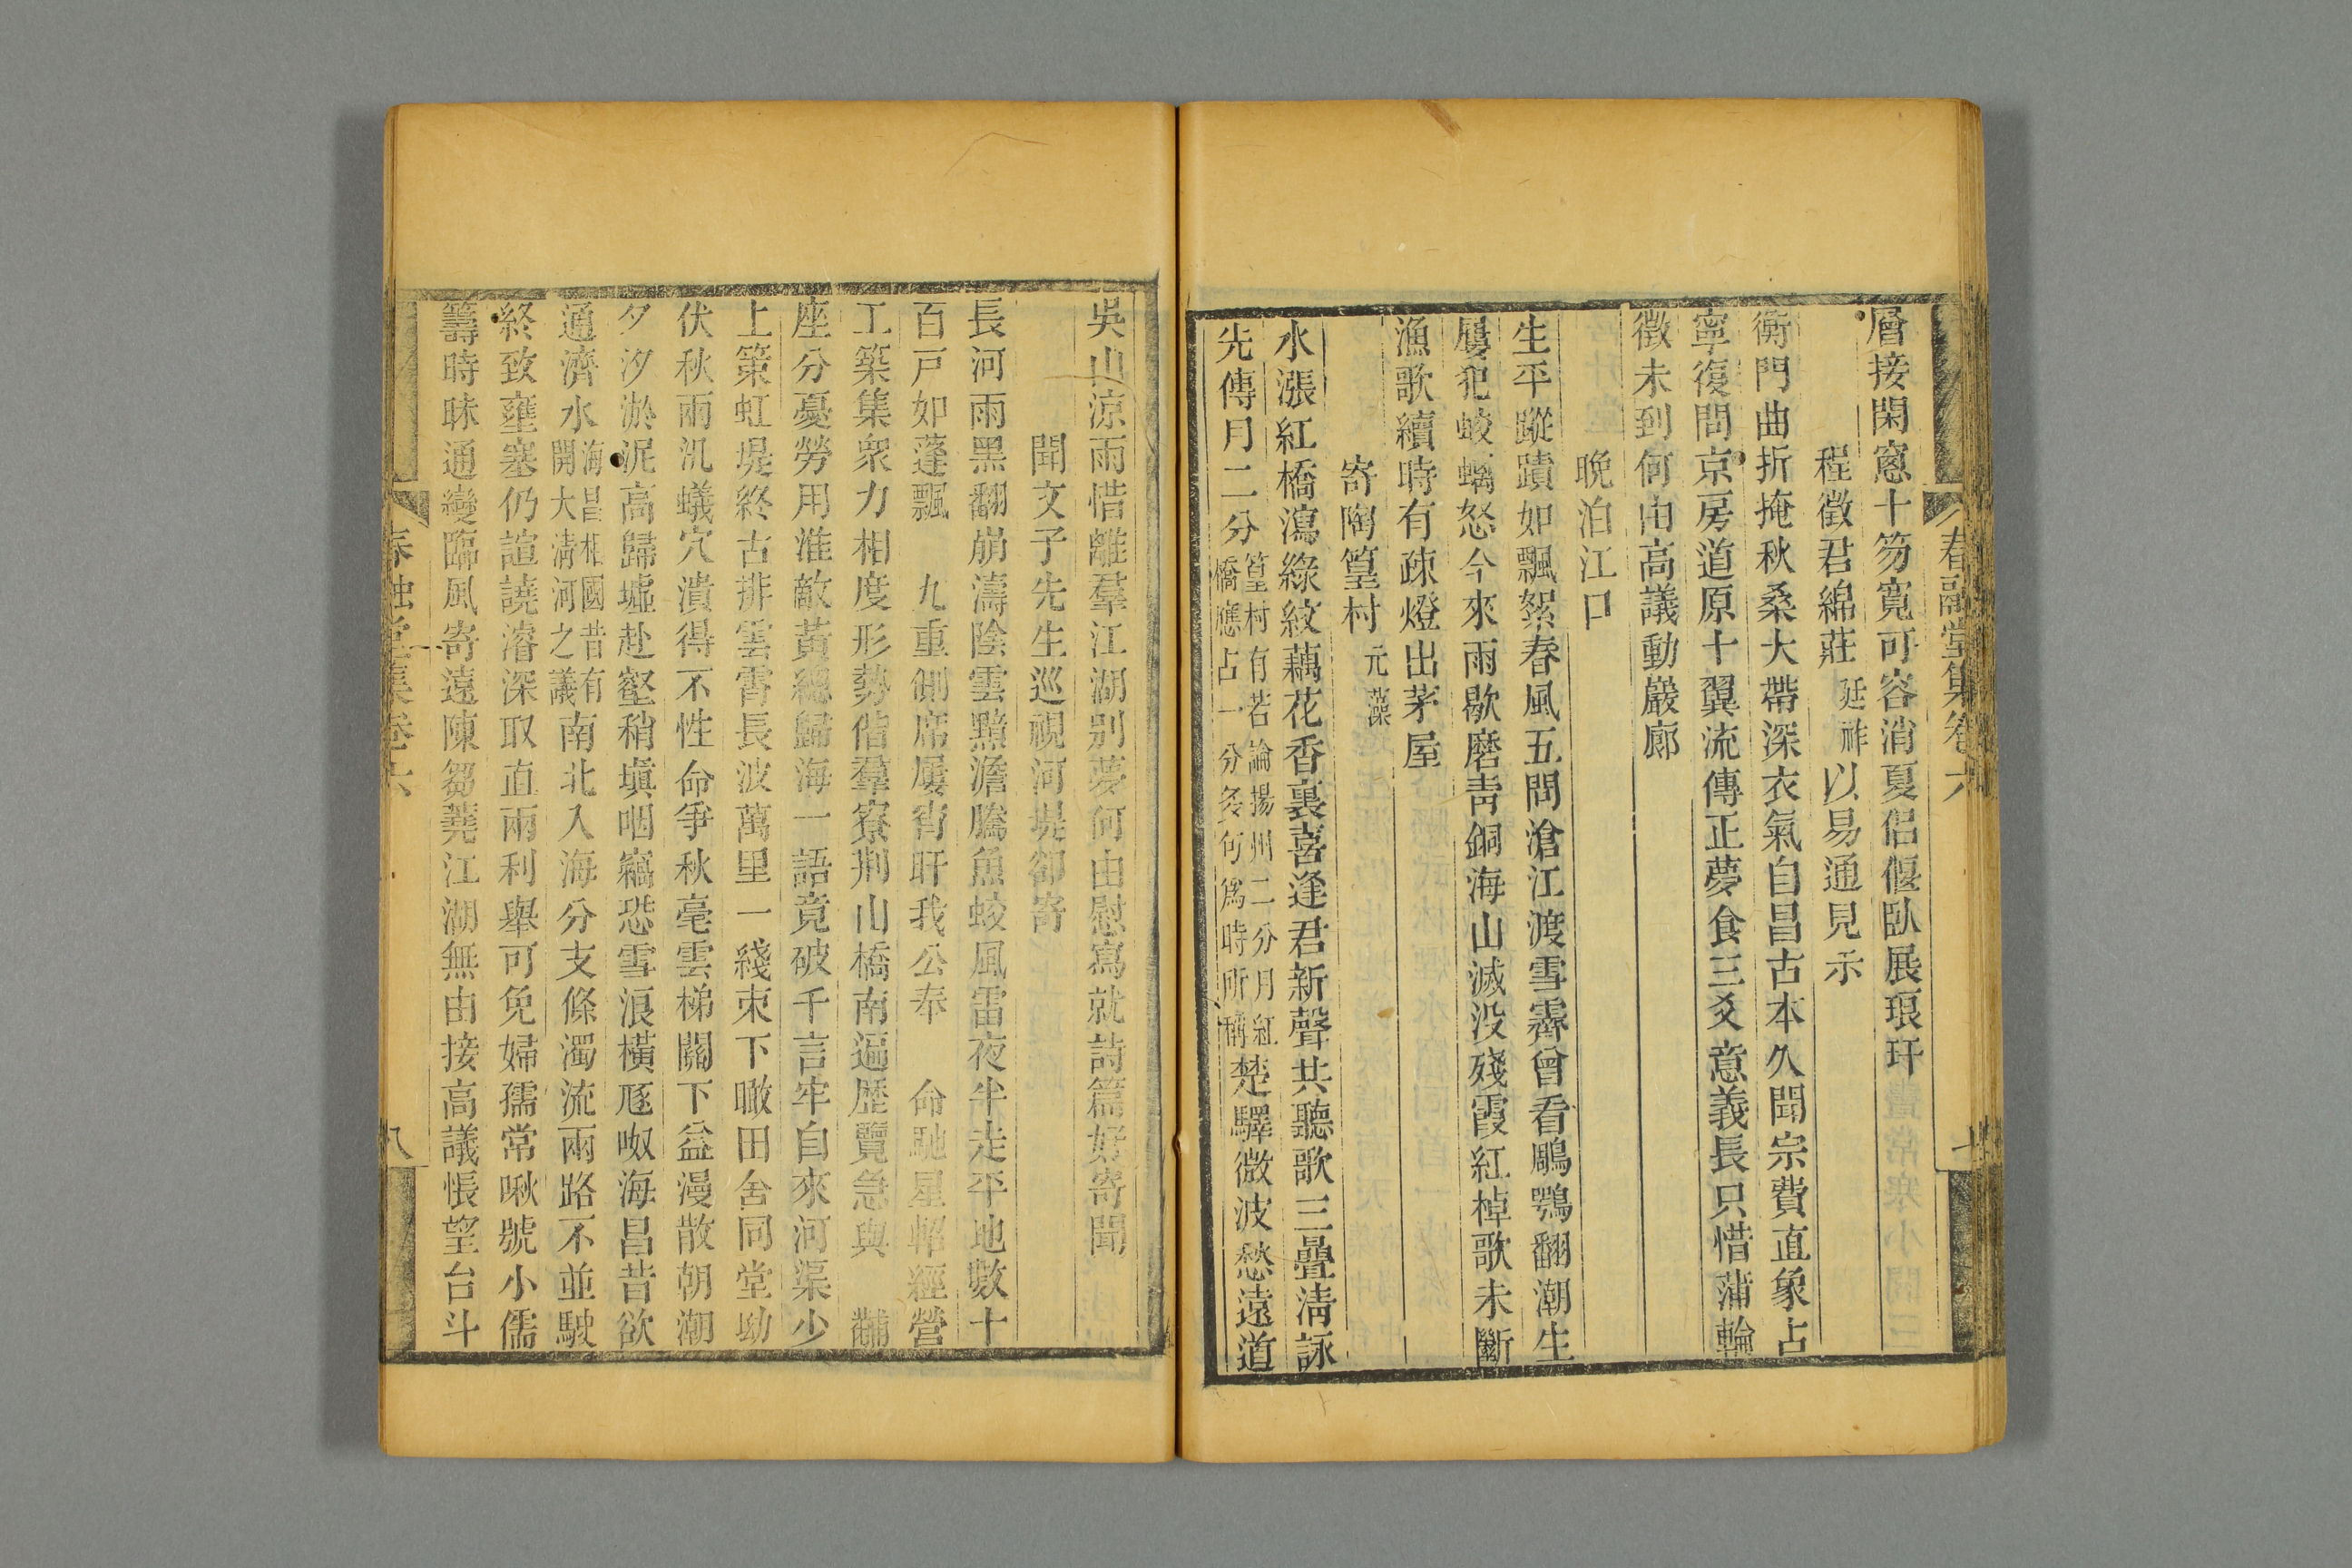 春融堂集卷六
七
層接閑窻十笏寬可容消夏侶偃臥展琅玕
程徵君綿莊延祚以易通見示
衡門曲折掩秋桑大帶深衣氣自昌古本久聞宗費直象占
寧復問京房道原十翼流傳正夢食三爻意義長只惜蒲輪
徵未到何由高議動巖廊
晚泊江口
生平蹤蹟如飄絮春風五問滄江渡雪霽曾看鵰鶚翻潮生
屢犯蛟螭怒今來雨歇磨靑銅海山滅没殘霞紅棹歌未斷
漁歌續時有疎燈出茅屋
寄陶篁村元藻
水漲紅橋瀉綠紋藕花香裏喜逢君新聲共聽歌三疊淸詠
先傳月二分篁村有若論揚州二分月紅橋應占一分多句爲時所稱楚驛微波愁遠道
吳山凉雨惜離羣江湖别夢何由慰寫就詩篇好寄聞
聞文子先生巡視河堤卻寄
長河雨黑翻崩濤陰雲黯澹騰魚蛟風雷夜半走平地數十
百戸如蓬飄 九重側席屢宵旰我公奉 命馳星軺經營
工築集衆力相度形勢偕羣寮荆山橋南遍歴覽急與 黼
座分憂勞用淮敵黃總歸海一語竟破千言牢自來河渠少
上策虹堤終古排雲霄長波萬里一綫束下瞰田舍同堂坳
伏秋雨汛蟻穴潰得不性命爭秋毫雲梯關下益漫散朝潮
夕汐淤泥高歸墟赴壑稍塡咽竊恐雪浪橫豗呶海昌昔欲
通濟水海昌相國昔有開大淸河之議南北入海分支條濁流兩路不並駛
終致壅塞仍諠譊濬深取直兩利舉可免婦孺常啾號小儒
籌時昧通變臨風寄遠陳芻蕘江湖無由接高議悵望台斗
春融堂集卷六
八